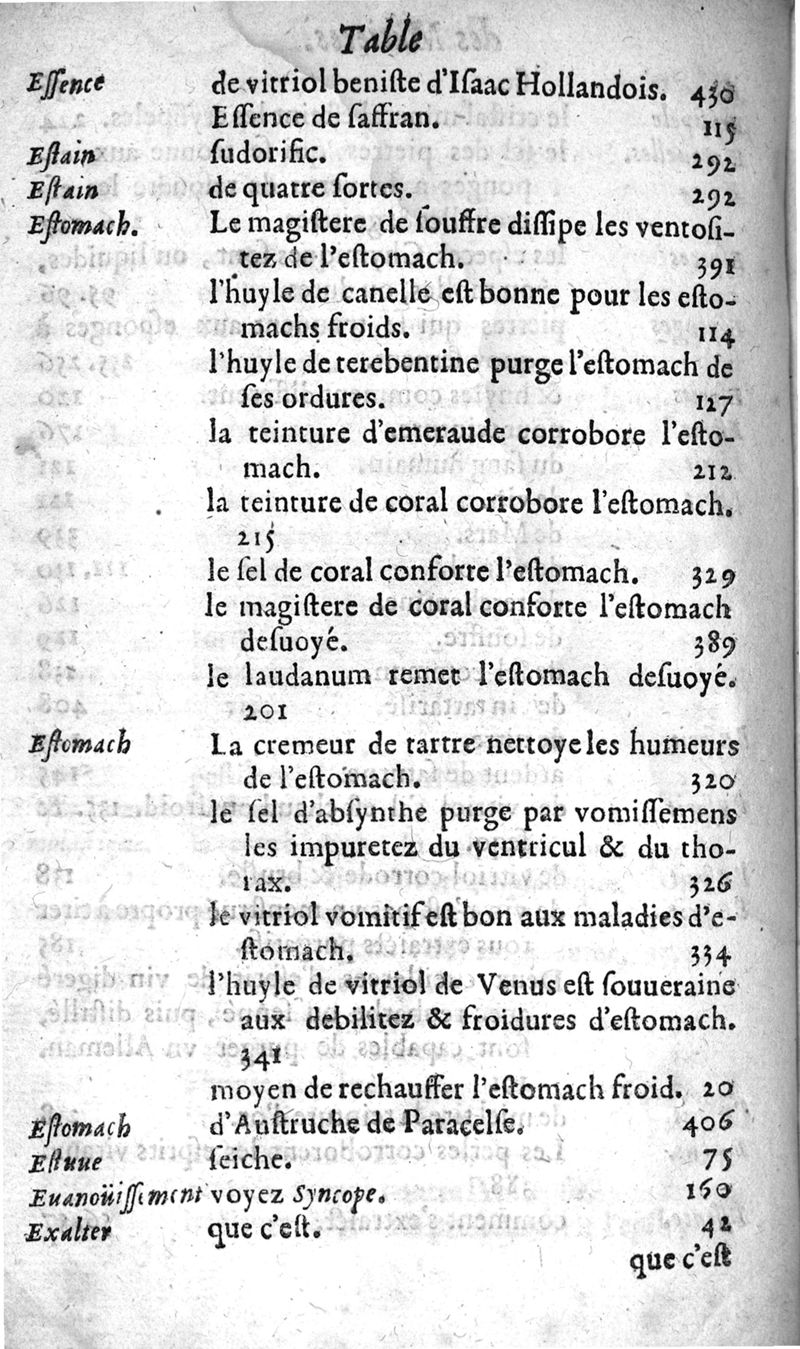 Table
Eſſence de vitriol beniſte d'Iſaac Hollandois. 430
Eſſence de ſaffran. 115
Eſtain ſudorific. 292
Eſtain de quatre ſortes. 292
Eſtomach. Le magiſtere de ſouffre diſſipe les ventoſi-
tez de l'eſtomach. 391
l'huyle de canelle eſt bonne pour les eſto-
machs froids. 114
l'huyle de terebentine purge l'eſtomach de
ſes ordures. 127
la teinture d'emeraude corrobore l'eſto-
mach. 212
la teinture de coral corrobore l'eſtomach.
215
le ſel de coral conforte l'eſtomach. 329
le magiſtere de coral conforte l'eſtomach
deſuoyé. 389
le laudanum remet l'eſtomach deſuoyé.
201
Eſtomach La cremeur de tartre nettoye les humeurs
de l'eſtomach. 320
le ſel d'abſynthe purge par vomiſſemens
les impuretez du ventricul & du tho-
rax. 326
le vitriol vomitif eſt bon aux maladies d'e-
ſtomach. 334
l'huyle de vitriol de Venus eſt ſouueraine
aux debilitez & froidures d'eſtomach.
341
moyen de rechauffer l'eſtomach froid. 20
Eſtomach d'Auſtruche de Paracelſe. 406
Eſtuue ſeiche. 75
Euanoüiſſement voyez Syncope. 160
Exalter que c'eſt. 42
que c'eſt